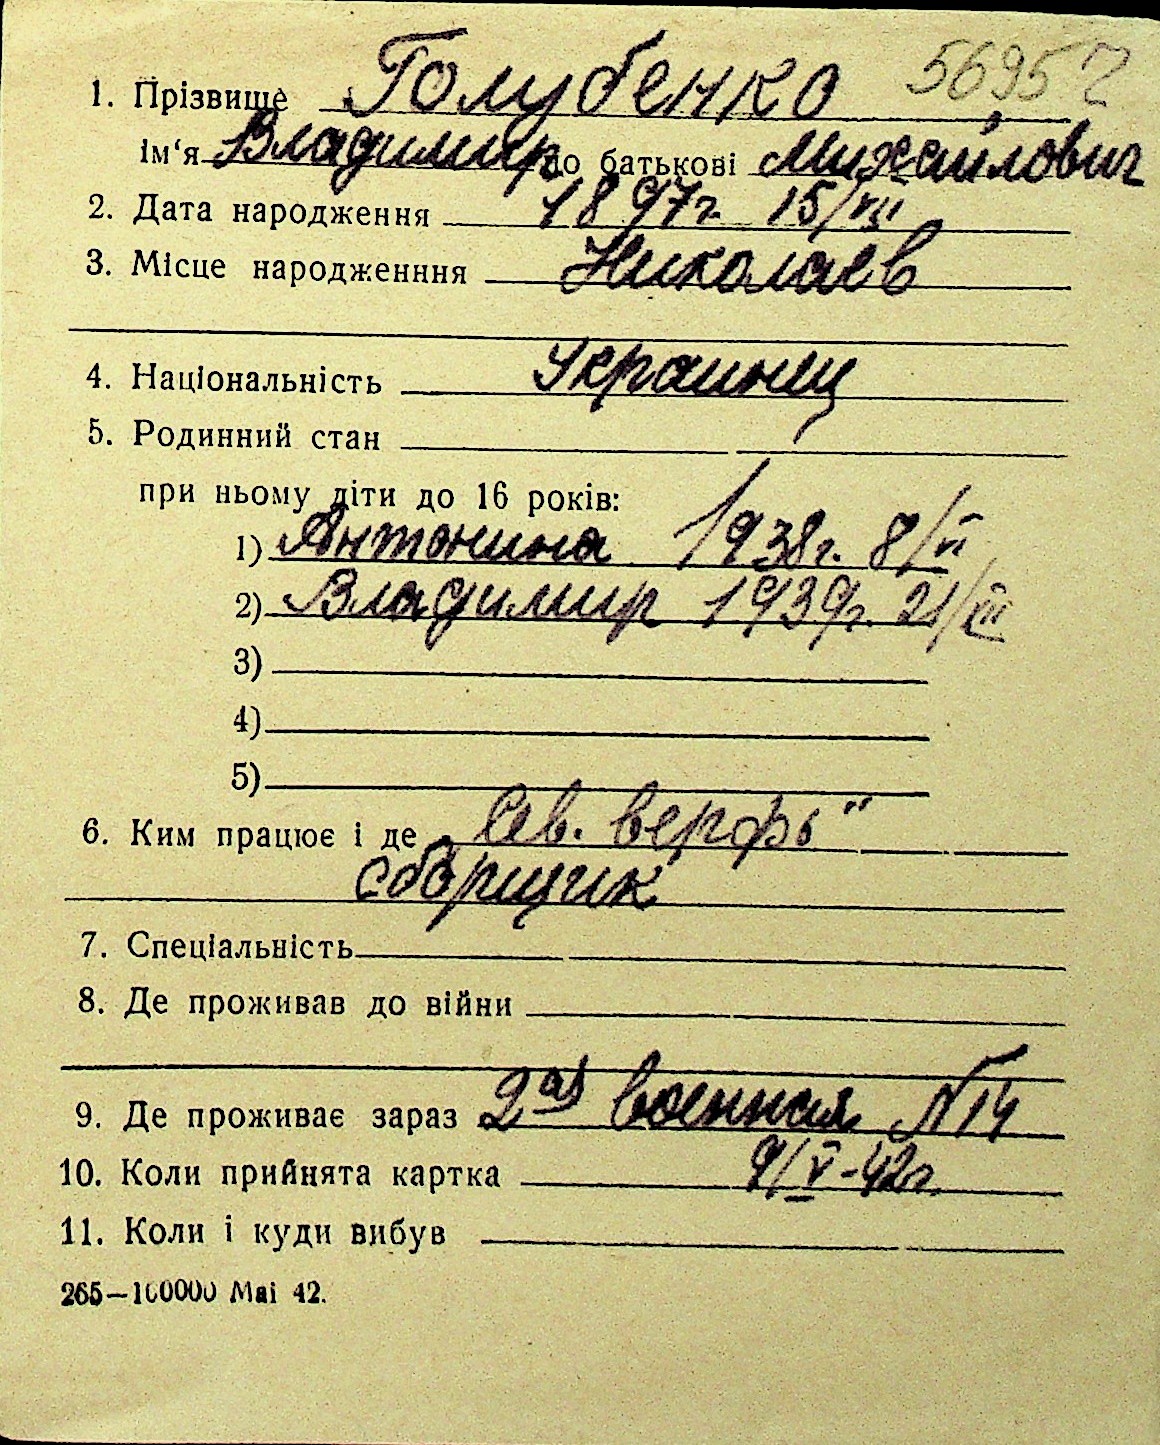 1. Прізвище Голубенко 5695
ім'я Владимир по батькові Михайлович
2. Дата народження 1897г. 15/VIII
3. Місце народженння Николаев
4. Національність Украинец
5. Родинний стан
при ньому діти до 16 років:
1) Антонина 1938г. 8/VI
2) Владимир 1939г. 21/XII
3)
4)
5)
6. Ким працює і де „Сев. верфь"
сборщик
7. Спеціальність
8. Де проживав до війни
9. Де проживає зараз 2ая военная N14
10. Коли прийнята картка 9/V-42г.
11. Коли і куди вибув
265—100000 Mai 42.